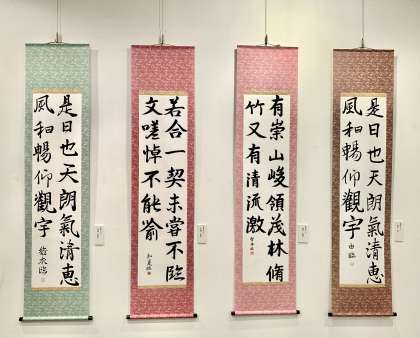 是日也天朗氣清惠
風和暢仰觀宇
若合一契未嘗不臨
文嗟悼不能喻
有崇山峻領茂林脩
竹又有清流激
是日也天朗氣清惠
風和暢仰觀宇